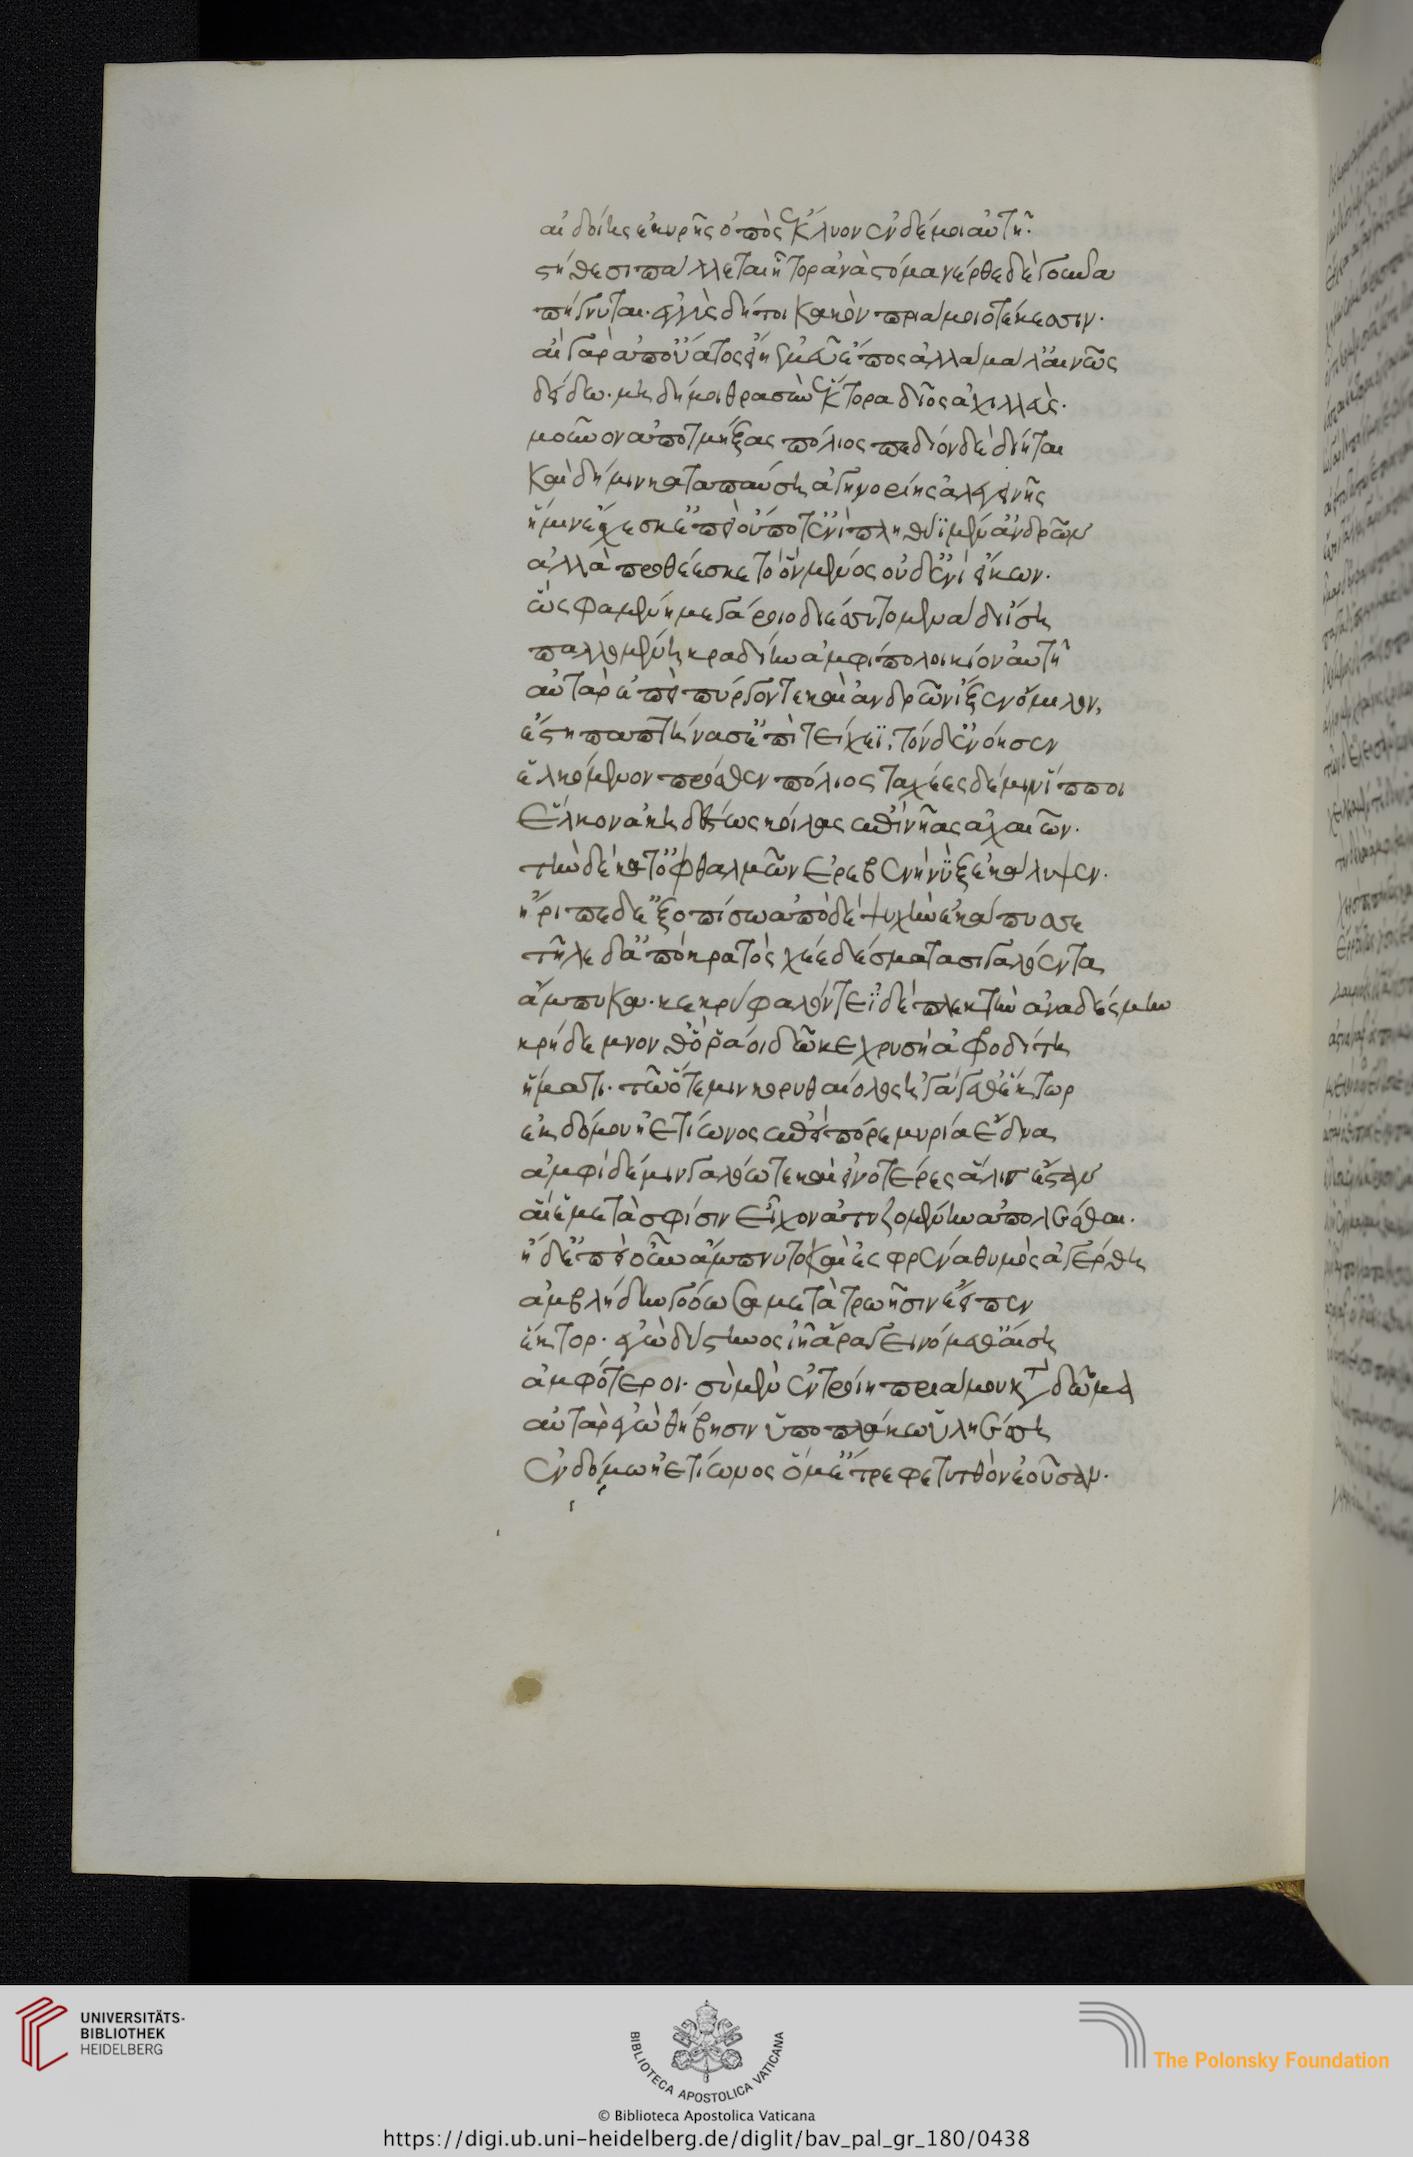 αἰδοίης ἑκυρῆς ὀπὸς ἔκλυον ἐν δέ μοι αὐτῆ·
στήθεσι πάλλεται ἦτορ ἀνὰ στόμα νέρθε δὲ γοῦνα
πήγνυται· ἐγγὺς δή τι κακὸν πριάμοιο τέκεσσιν·
αἲ γὰρ ἀπ' οὔατος εἴη ἐμεῦ ἔπος ἀλλὰ μάλ' αἰνῶς
δείδω· μὴ δή μοι θρασὺν ἕκτορα δῖος ἀχιλλεὺς·
μοῦνον ἀποτμήξας πόλιος πεδίον δὲ δίηται
καὶ δή μιν καταπαύση ἀγηνορίης ἀλεγεινῆς
ἥ μιν ἔχεσκ' ἐπεὶ οὔποτ' ἐνὶ πληθύϊ μένεν ἀνδρῶν
ἀλλὰ προθέεσκε τὸ ὃν μένος οὐδενὶ εἴκων·
ὣς φαμένη μεγάροιο διέσσυτο μαινάδι ἴση
παλλομένη κραδίην ἅμα δ' ἀμφίπολοι κίον αὐτῆ
αὐτὰρ ἐπεὶ πύργόν τε καὶ ἀνδρῶν ἷξεν ὅμιλον,
ἔστη παπτήνασ' ἐπὶ τείχεϊ, τὸν δ' ἐνόησεν
ἑλκόμενον πρόσθεν πόλιος ταχέες δέ μιν ἵπποι
ἕλκον ἀκηδέστως κοίλας ἐπὶ νῆας ἀχαιῶν·
τὴν δὲ κατ' ὀφθαλμῶν ἐρεβενὴ νὺξ ἐκάλυψεν·
ἤριπε δ' ἐξοπίσω ἀπὸ δὲ ψυχὴν ἐκάπυσσε
τῆλε δ' ἀπὸ κρατὸς χέε δέσματα σιγαλόεντα
ἄμπυκα· κεκρύφαλόν τε ἰδὲ πλεκτὴν ἀναδέσμην
κρήδεμνον θ' ὅ ῥά οἱ δῶκε χρυσῆ ἀφροδίτη
ἤματι· τῶ ὅτε μιν κορυθαίολος ἠγάγεθ' ἕκτωρ
ἐκ δόμου ἠετίωνος ἐπεὶ πόρε μυρία ἕδνα
ἀμφὶ δέ μιν γαλόω τε καὶ εἰνατέρες ἅλις ἔσταν
αἵ ἑ μετὰ σφίσιν εἶχον ἀτυζομένην ἀπολέσθαι·
ἡ δ' ἐπεὶ οὖν ἄμπνυτο καὶ ἐς φρένα θυμὸς ἀγέρθη
ἀμβλήδην γοόωσα μετὰ τρωῆσιν ἔειπεν
ἕκτορ· ἐγὼ δύστηνος ἰῆ ἄρα γεινόμεθ' αἴση
ἀμφότεροι· σὺ μὲν ἐν τροίη πριάμου κατὰ δῶμα
αὐτὰρ ἐγὼ θήβησιν ὑπο πλάκω ὑληέσση
ἐν δόμω ἠετίωνος ὅ μ' ἔτρεφε τυτθὸν ἐοῦσαν·
UNIVERSITÄTS-
BIBLIOTHEK
HEIDELBERG
BIBLIOTECA APOSTOLICA VATICANA
The Polonsky Foundation
© Biblioteca Apostolica Vaticana
https://digi.ub.uni-heidelberg.de/diglit/bav_pal_gr_180/0438